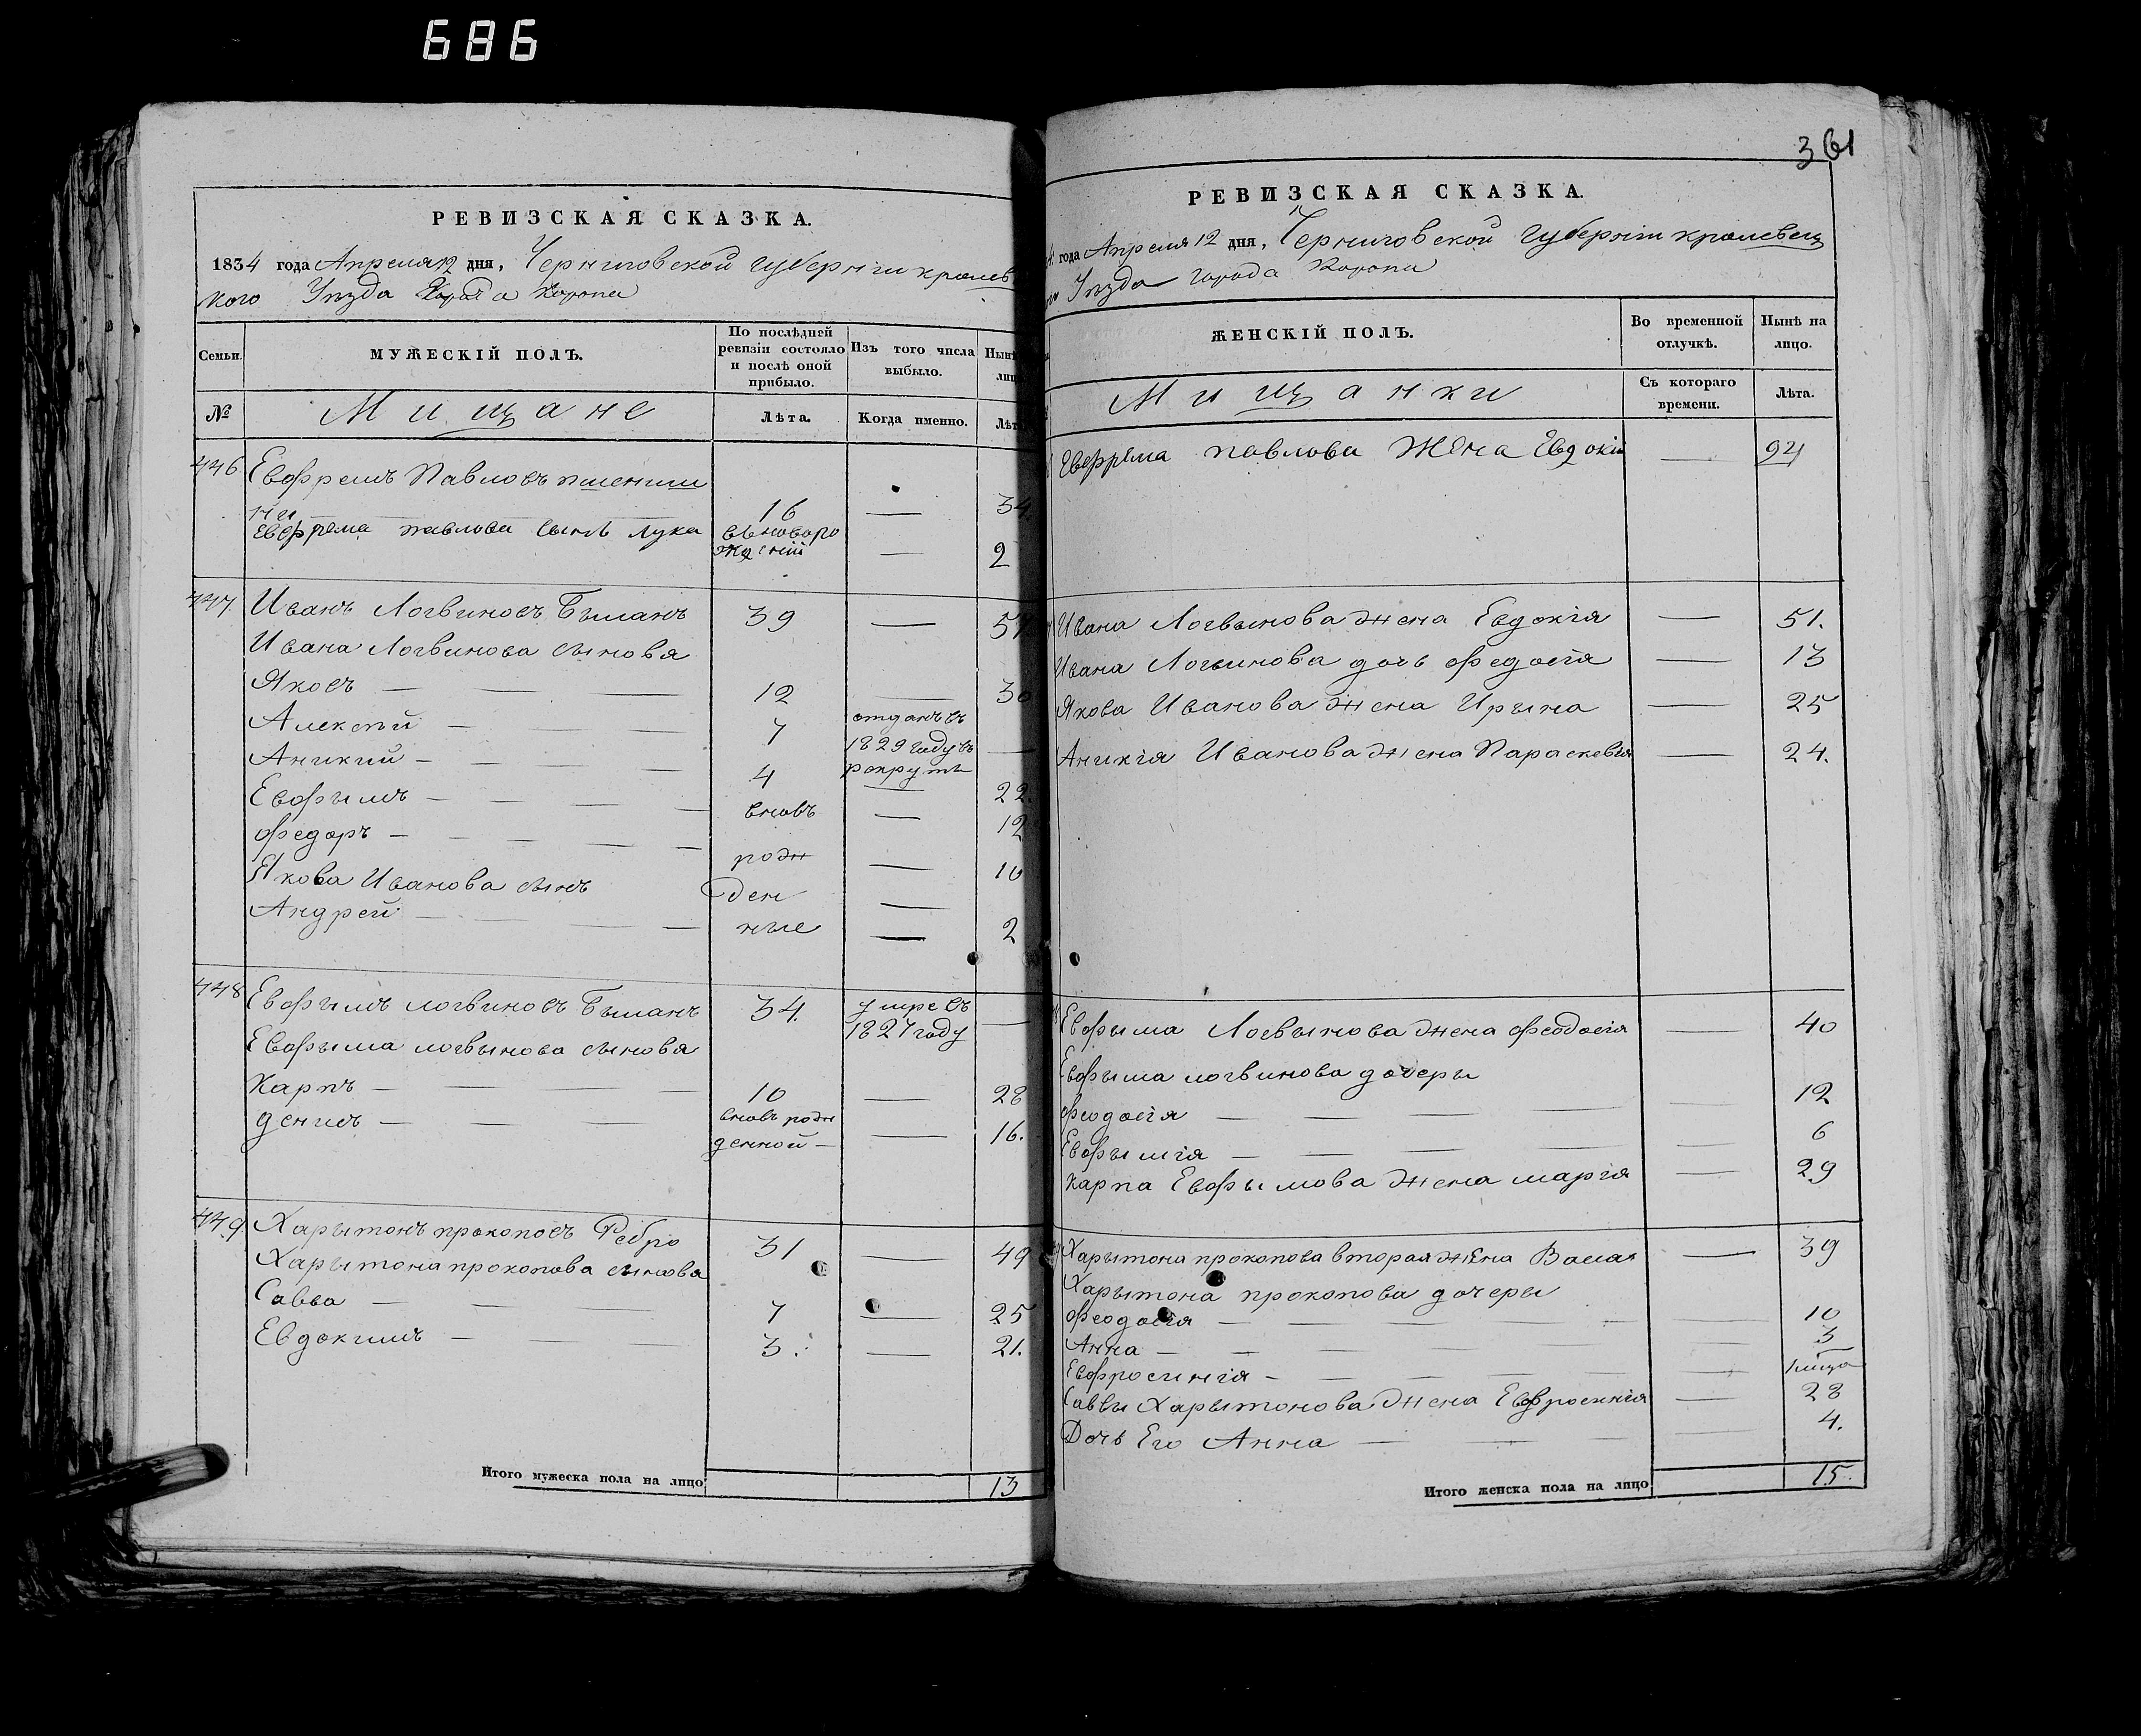 686
361
РЕВИЗСКАЯ СКАЗКА.
1834 года Апреля 12 дня, Черниговской губерніи кролев
кого Уезда Города Коропа
Семьи.
МУЖЕСКІЙ ПОЛЪ.
По послѣдней ревизіи состояло и послѣ оной прибыло.
Изъ того числа выбыло.
№
Мищане
Лѣта.
Когда именно.
446 Евфремъ Павловъ
16 — 34
Евфрема павлова сынъ лука
вноворо
жденій — 2
447 Иванъ Логвиновъ Быманъ 39 —
Ивана Логвинова сыновя
Яковъ — 12 — 30
Алексѣй — 7 отданъ въ
1829 году въ
рекруты
Аникий — 4 — 22.
Евфымъ — вновь — 12
Федоръ — рож — 10
Якова Иванова сынъ ден —
Андрей — ные — 2
448 Евфымъ логвиновъ Быманъ 34. умре въ
1827 году —
Евфыма логвынова сынова
Карпъ — 10 — 28
денисъ — вновь рож
денной — 16.
449 Харытонъ прокоповъ Ребро 31 — 49
Харытона прокопова сынова
Савва — 7 — 25
Евдокимъ — 3. — 21.
Итого мужеска пола на лицо 13
РЕВИЗСКАЯ СКАЗКА.
года Апреля 12 дня, Черниговской губерніи кролевец
Уезда города Коропа
ЖЕНСКІЙ ПОЛЪ.
Во временной отлучкѣ.
Нынѣ на лицо.
Мищанки
Съ котораго времени.
Лѣта.
Евфрема павлова жена Евдокія — 24
Ивана Логвынова жена Евдокія — 51.
Ивана Логвинова дочь Федосія — 13
Якова Иванова жена Ирына — 25
Аникія Иванова жена Параскевія — 24.
Евфыма Логвынова жена Феодосія — 40
Евфыма логвинова дочеры
Феодосія — 12
Евфымія — 6
Карпа Евфымова жена марія — 29
Харытона прокопова вторая жена — 39
Харытона прокопова дочеры
Феодосія — 10
Анна — 3
Евфросинія —
Саввы Харытонова жена Евфросинія — 28
Дочь Его Анна — 4.
Итого женска пола на лицо 15.